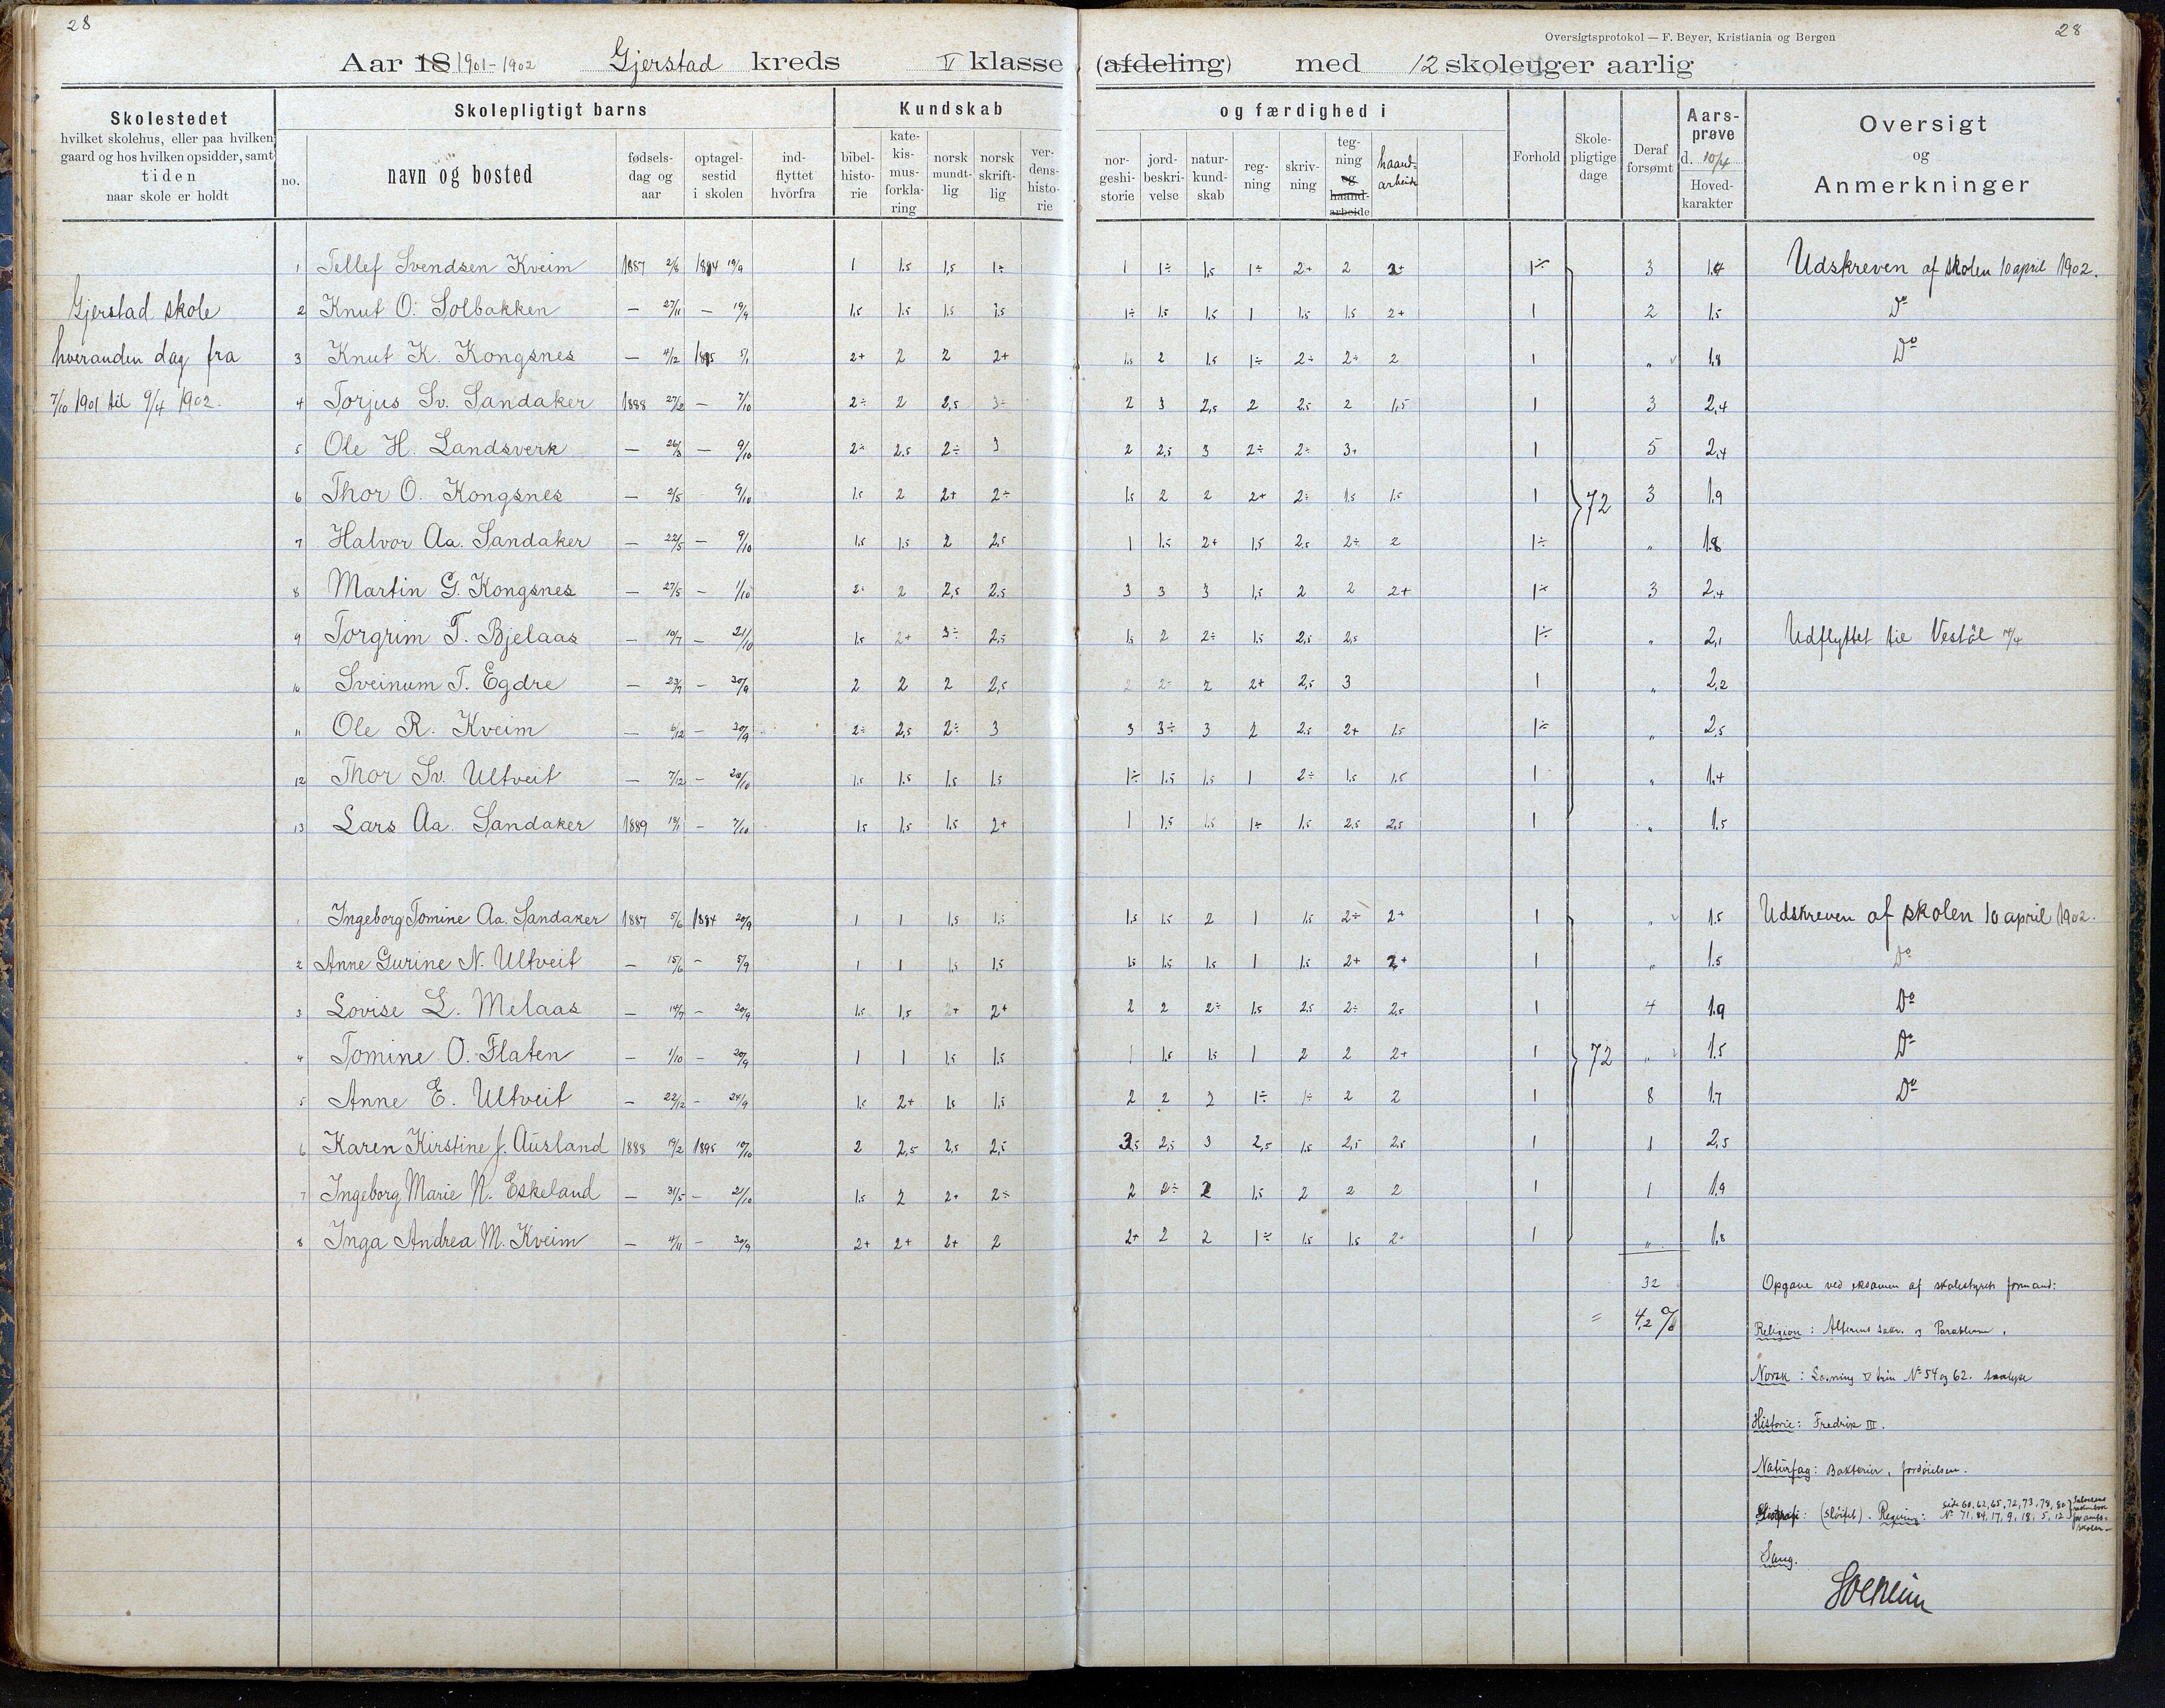 28
28
Oversigtsprotokol — F. Beyer, Kristiania og Bergen
Aar 18 1901-1902 Gjerstad kreds V klasse (afdeling) med 12 skoleuger aarlig
Skolestedet
hvilket skolehus, eller paa hvilken
gaard og hos hvilken opsidder, samt
tiden
naar skole er holdt
Skolepligtigt barns
no.
navn og bosted
fødsels-
dag og
aar
optagel-
sestid
i skolen
ind-
flyttet
hvorfra
Kundskab
bibel-
histo-
rie
kate-
kis-
mus-
forkla-
ring
norsk
mundt-
lig
norsk
skrift-
lig
ver-
dens-
histo-
rie
og færdighed i
nor-
geshi-
storie
jord-
beskri-
velse
natur-
kund-
skab
reg-
ning
skriv-
ning
teg-
ning
og
haand-
arbeide
haand-
arbeide
Forhold
Skole-
pligtige
dage
Deraf
forsømt
Aars-
prøve
d. 10/4
Hoved-
karakter
Oversigt
og
Anmerkninger
Gjerstad skole
hveranden dag fra
7/10 1901 til 9/4 1902.
1 Tellef Svendsen Kveim 1887 2/6 1894 19/9 1 1,5 1,5 1÷ 1 1÷ 1,5 1÷ 2+ 2 2+ 1÷ 3 1,4 Udskreven af skolen 10 april 1902.
2 Knut O. Solbakken — 27/11 — 19/9 1,5 1,5 1,5 1,5 1÷ 1,5 1,5 1 1,5 1,5 2+ 1 2 1,5 Do
3 Knut K. Kongsnes — 4/12 1895 5/1 2+ 2 2 2+ 1,5 2 1,5 1÷ 2÷ 2÷ 2 1 „ 1,8 Do
4 Torjus Sv. Sandaker 1888 27/2 — 7/10 2÷ 2 2,5 3÷ 2 3 2,5 2 2,5 2 1,5 1 3 2,4
5 Ole H. Landsverk — 26/3 — 9/10 2÷ 2,5 2÷ 3 2 2,5 3 2÷ 2÷ 3+ 1 5 2,4
6 Thor O. Kongsnes — 2/5 9/10 1,5 2 2+ 2÷ 1,5 2 2 2+ 2÷ 1,5 1,5 1 72 3 1,9
7 Halvor Aa. Sandaker — 22/5 — 9/10 1,5 1,5 2 2,5 1 1,5 2+ 1,5 2,5 2÷ 2 1÷ „ 1,8
8 Martin G. Kongsnes — 27/5 — 1/10 2÷ 2 2,5 2,5 3 3 3 1,5 2 2 2+ 1÷ 3 2,4
9 Torgrim T. Bjelaas — 10/7 — 21/10 1,5 2+ 3÷ 2,5 1,5 2 2÷ 1,5 2,5 2,5 1÷ „ 2,1 Udflyttet til Vestøl 14/4
10 Sveinum T. Egdre — 23/9 — 30/9 2 2 2 2,5 2 2÷ 2 2+ 2,5 3 1 „ 2,2
11 Ole R. Kveim — 6/12 — 30/9 2÷ 2,5 2÷ 3 3 3÷ 3 2 2,5 2+ 1,5 1÷ „ 2,5
12 Thor Sv. Ultveit — 7/12 — 20/10 1,5 1,5 1,5 1,5 1÷ 1,5 1,5 1 2÷ 1,5 1,5 1 „ 1,4
13 Lars Aa. Sandaker 1889 18/1 — 7/10 1,5 1,5 1,5 2+ 1 1,5 1,5 1÷ 1,5 2,5 2,5 1 „ 1,5
1 Ingeborg Tomine Aa. Sandaker 1887 5/6 1894 20/9 1 1 1,5 1,5 1,5 1,5 2 1 1,5 2÷ 2+ 1 „ 1,5 Udskreven af skolen 10 april 1902.
2 Anne Gurine N. Ultveit — 15/6 — 5/9 1 1 1,5 1,5 1,5 1,5 1,5 1 1,5 2+ 2+ 1 „ 1,5 Do
3 Lovise L. Melaas — 14/7 — 20/9 1,5 1,5 2+ 2+ 2 2 2÷ 1,5 2,5 2÷ 2,5 1 4 1,9 Do
4 Tomine O. Flaten — 1/10 — 20/9 1 1 1,5 1,5 1 1,5 1,5 1 2 2 2+ 1 72 „ 1,5 Do
5 Anne E. Ultveit — 22/12 — 24/9 1,5 2+ 1,5 1,5 2 2 2 1÷ 1÷ 2 2 1 8 1,7 Do
6 Karen Kirstine J. Ausland 1888 19/2 1895 10/10 2 2,5 2,5 2,5 3,5 2,5 3 2,5 1,5 2,5 2,5 1 1 2,5
7 Ingeborg Marie N. Eskeland — 31/5 — 2/10 1,5 2 2+ 2÷ 2 2÷ 2 1,5 2 2 2 1 1 1,9
8 Inga Andrea M. Kveim — 4/11 — 30/9 2+ 2+ 2+ 2 2+ 2 2 1÷ 1,5 1,5 2÷ 1 „ 1,8
32
= 4,2 %
Opgave ved eksamen af skolestyrets formand:
Religion: Alterens sakr. og Parablerne.
Norsk: Læsning V trin No 54 og 62. Analyse
Historie: Fredrik III.
Naturfag: Bakterier, fordøielsen.
(sløifet). Regning: side 60, 62, 65, 72, 73, 78, 80
No 71, 84, 17, 9, 18, 5, 12
Sang.